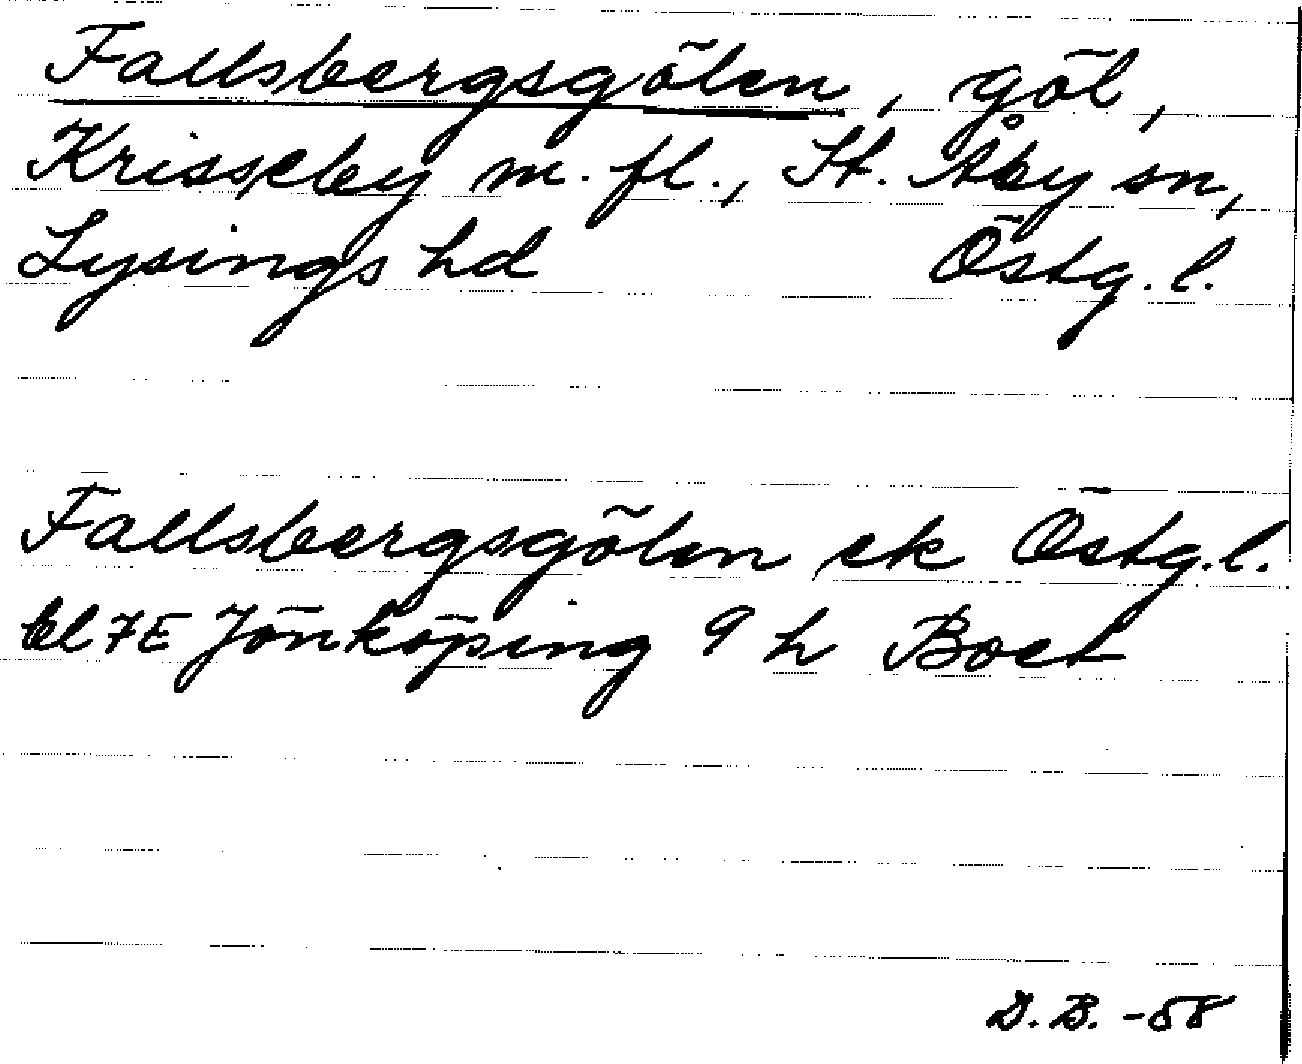 Fallsbergsgölen, göl,
Krisseby m. fl., St. Åby sn,
Lysings hd Östg. l.
Fallsbergsgölen ek Östg. l.
bl 7E Jönköping 9 h Boet
D. B. -58